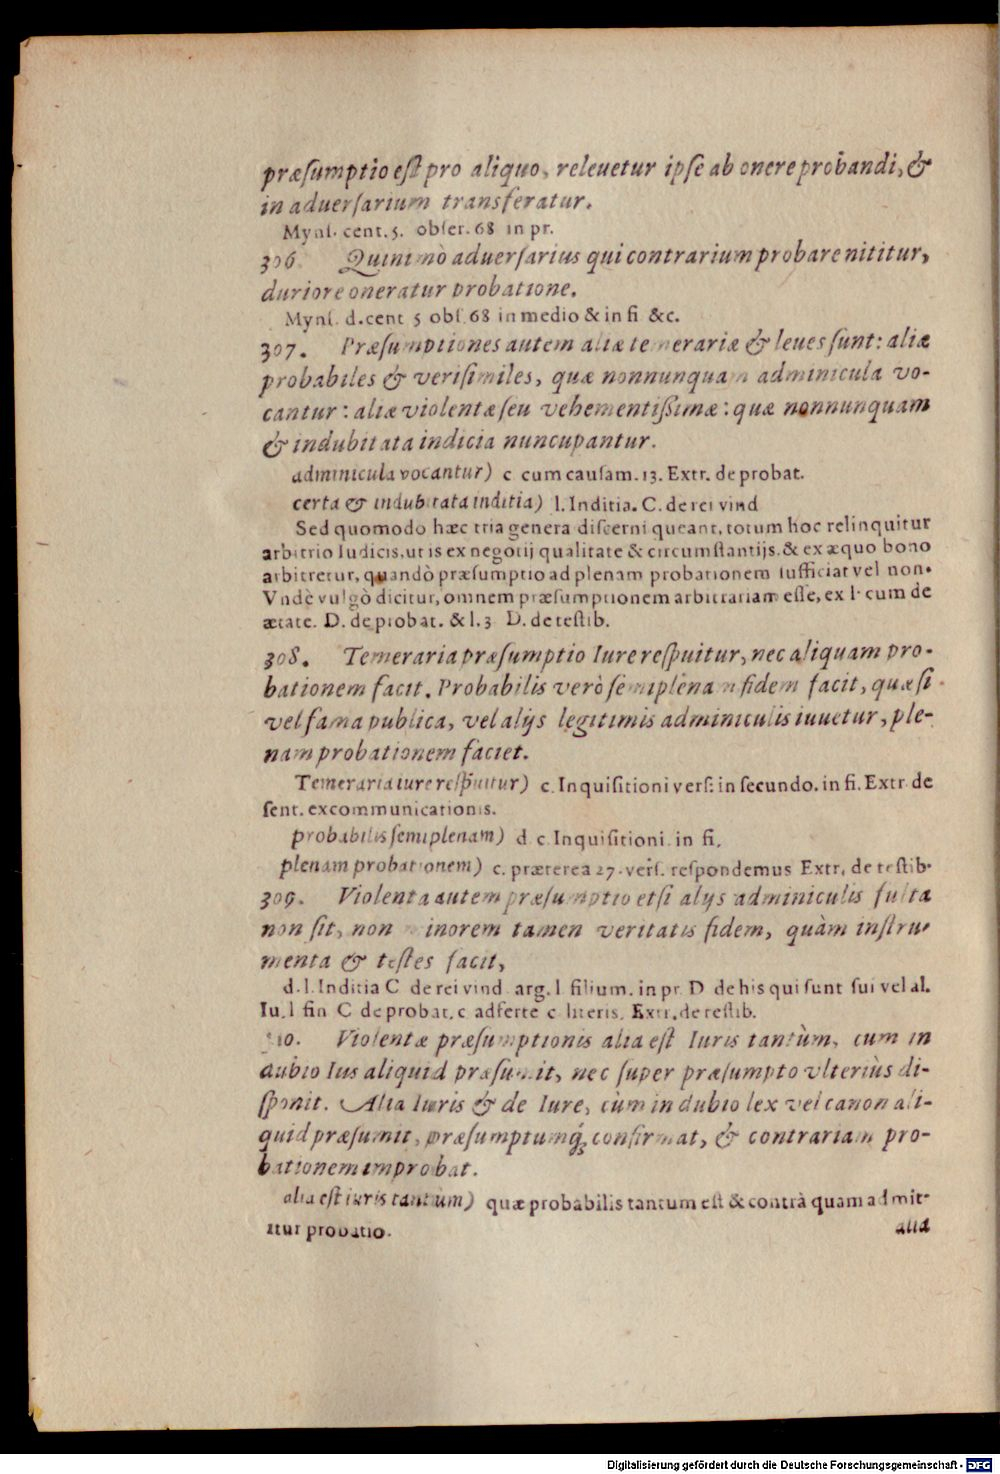 præſumptio eſt pro aliquo, releuetur ipſe ab onere probandi, &
in aduerſarium transferatur.
Mynſ. cent. 5. obſer. 68 in pr.
306 Quinimò aduerſarius qui contrarium probare nititur,
duriore oneratur probatione.
Mynſ. d. cent 5 obſ. 68 in medio & in fi &c.
307. Præſumptiones autem aliæ temerariæ & leues ſunt: aliæ
probabiles & veriſimiles, quæ nonnunquam adminicula vo-
cantur: aliæ violentæ ſeu vehementiſſimæ: quæ nonnunquam
& indubitata indicia nuncupantur.
adminicula vocantur) c. cum cauſam. 13. Extr. de probat.
certa & indubitata inditia) l. Inditia. C. de rei vind
Sed quomodo hæc tria genera diſcerni queant, totum hoc relinquitur
arbitrio Iudicis, ut is ex negotij qualitate & circumſtantijs. & ex æquo bono
arbitretur, quandò præſumptio ad plenam probationem ſufficiat vel non.
Vndè vulgò dicitur, omnem præſumptionem arbitrariam eſſe, ex l. cum de
ætate. D. de probat. & l. 3 D. de teſtib.
308. Temeraria præſumptio Iure reſpuitur, nec aliquam pro-
bationem facit. Probabilis verò ſemiplenam fidem facit, quæ ſi
vel fama publica, vel alijs legitimis adminiculis iuuetur, ple-
nam probationem faciet.
Temeraria iure reſpuitur) c. Inquiſitioni verſ: in ſecundo. in fi. Extr. de
ſent. excommunicationis.
probabilis ſemiplenam) d. c. Inquiſitioni. in fi.
plenam probationem) c. præterea 27. verſ. reſpondemus Extr. de teſtib.
309. Violenta autem præſumptio etſi alijs adminiculis fulta
non ſit, non minorem tamen veritatis fidem, quàm inſtru-
menta & teſtes facit,
d. l. Inditia C de rei vind. arg. l filium. in pr. D de his qui ſunt ſui vel al.
Iu. l fin C de probat. c adferte c literis. Extr. de teſtib.
310. Violentæ præſumptionis alia eſt Iuris tantùm, cum in
dubio Ius aliquid præſumit, nec ſuper præſumpto vlteriùs di-
ſponit. Alia Iuris & de Iure, cùm in dubio lex vel canon ali-
quid præſumit, præſumptumq́; confirmat, & contrariam pro-
bationem improbat.
alia eſt iuris tantum) quæ probabilis tantum eſt & contrà quam admit-
itur probatio.
alia
Digitalisierung gefördert durch die Deutsche Forschungsgemeinschaft - DFG